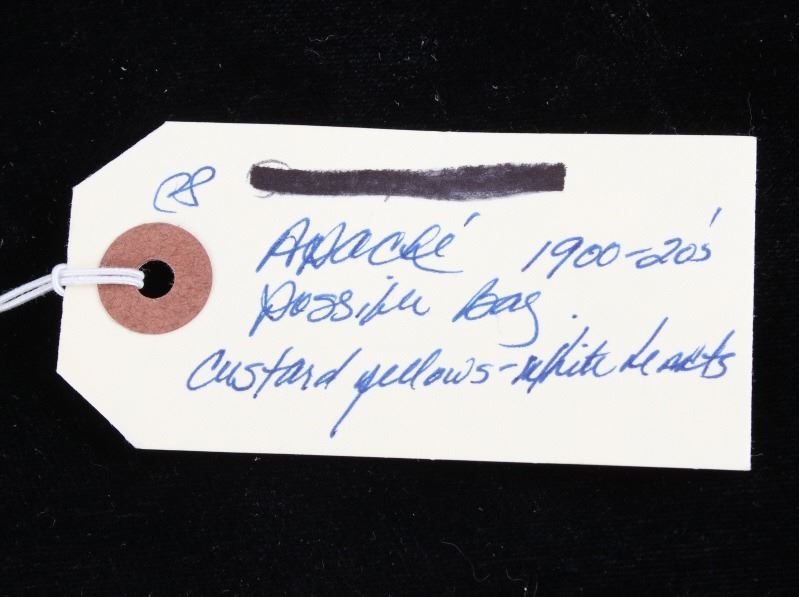 Apache 1900-20's
possible bag.
Custard yellows-white hearts